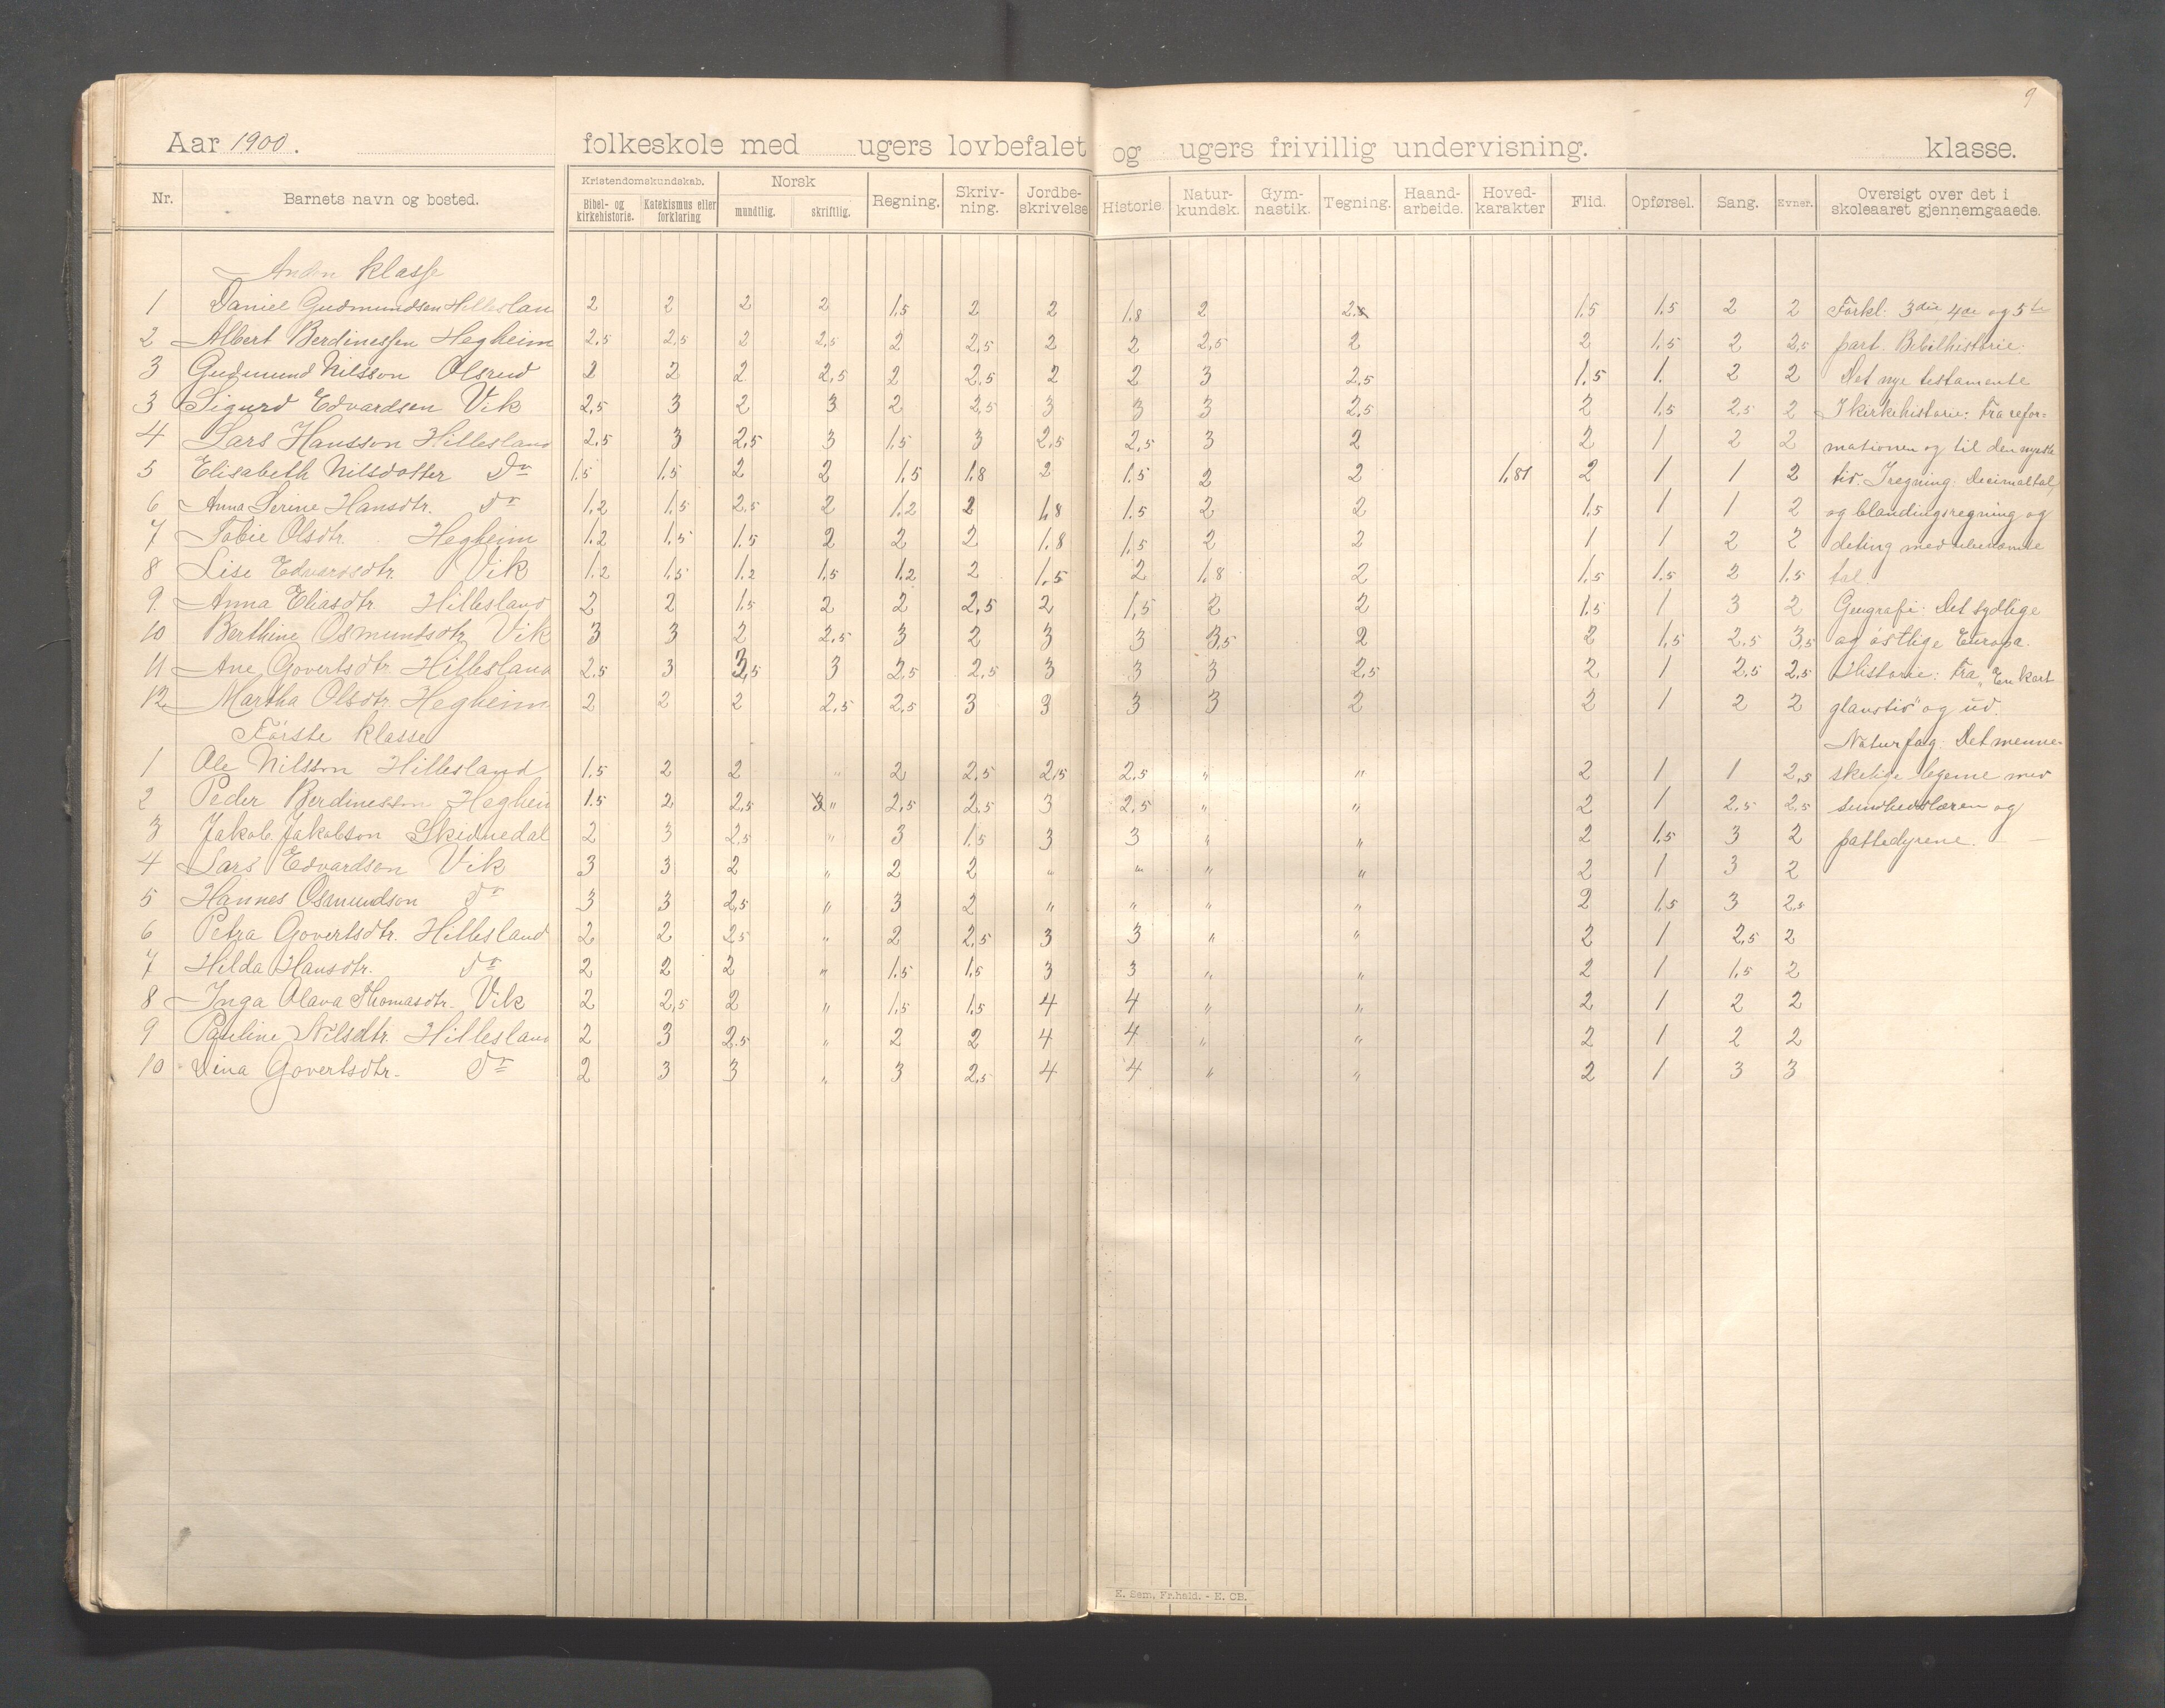 9
Aar 1900. folkeskole med ugers lovbefalet og ugers frivillig undervisning. klasse.
Nr. Barnets navn og bosted. Kristendomskundskab. Bibel- og kirkehistorie. Katekismus eller forklaring Norsk mundtlig. skriftlig. Regning. Skriv-ning. Jordbe-skrivelse Historie. Natur-kundsk. Gym-nastik. Tegning. Haand-arbeide. Hoved-karakter Flid. Opførsel. Sang. Evner. Oversigt over det i skoleaaret gjennemgaaede.
Anden klasse
1 Daniel Gudmundsen Hilleslan 2 2 2 2 1,5 2 2 1.8 2 2. 1.5 1.5 2 2 Forkl: 3die, 4de og 5te
2 Albert Berdinessen Hegheim 2,5 2,5 2 2,5 2 2,5 2 2 2,5 2 2 1,5 2 2,5 part. Bibelhistorie.
3 Gudmund Nilsson Olsrud 2 2 2 2,5 2 2,5 2 2 3 2,5 1,5 1. 2 2 Det nye testamente
3 Sigurd Edvardsen Vik 2,5 3 2 3 2 2,5 3 3 3 2,5 2 1,5 2,5 2 I kirkehistorie: Fra refor=
4 Lars Hansson Hillesland 2,5 3 2,5 3 1,5 3 2,5 2,5 3 2 2 1 2 2 mationen og til den nyeste
5 Elisabeth Nilsdotter do 1.5 1.5 2 2 1,5 1,8 2 1.5 2 2 1,81 2 1 1 2 tid. I regning: Decimaltal,
6 Anna Serine Hansdtr. do 1,2 1,5 2,5 2 1,2 2 1,8 1.5 2 2 1,5 1 1 2 og blandingsregning og
7 Tobie Olsdtr. Hegheim 1.2 1,5 1.5 2 2 2 1.8 1,5 2 2 1 1 2 2 deling med ubenævnte
8 Lise Edvardsdtr. Vik 1.2 1,5 1.2 1,5 1,2 2 1,5 2 1,8 2 1,5 1.5 2 1,5 tal.
9. Anna Eliasdtr. Hillesland 2 2 1.5 2 2 2,5 2 1,5 2 2 1.5 1 3 2 Geografi: Det sydlige
10 Berthine Osmundsdtr. Vik 3 3 2 2,5 3 2 3 3 3,5 2 2 1,5 2,5 3,5 og østlige Europa.
11 Ane Govertsdtr. Hillesland 2,5 3 3,5 3 2,5 2,5 3 3 3 2,5 2 1 2,5 2,5 Historie: Fra „En kort
12 Martha Olsdtr. Hegheim 2 2 2 2,5 2,5 3 3 3 3 2 2 1 2 2 glanstid" og ud.
Første klasse Naturfag: Det menne-
1 Ole Nilsson Hillesland 1.5 2 2 " 2 2,5 2,5 2,5 " " 2 1 1 2,5 skelige legeme med
2 Peder Berdinesson Heghei 1.5 2 2,5 " 2,5 2,5 3 2,5 " " 2 1 2,5 2,5 sundhedslæren og
3 Jakob Jakobson Skidnedal 2 3 2,5 " 3 1,5 3 3 " " 2 1,5 3 2 pattedyrene.
4 Lars Edvardson Vik 3 3 2 " 2 2 " " " " 2 1 3 2
5 Hannes Osmundson do 3 3 2,5 " 3 2 " " " " 2 1,5 3 2,5
6 Petra Govertsdtr. Hillesland 2 2 2,5 " 2 2,5 3 3 " " 2 1 2,5 2
7 Hilda Hansdtr. do 2 2 2 " 1.5 1,5 3 3 " " 2 1 1,5 2
8 Inga Olava Thomasdtr. Vik 2 2,5 2 " 1,5 1,5 4 4 " " 2 1 2 2
9 Pauline Nilsdtr. Hillesland 2 3 2.5 " 2 2 4 4 " " 2 1 2 2
10 Dina Govertsdtr. do 2 3 3 " 3 2,5 4 4 " " 2 1 3 3
E. Sem, Fr.hald. - E. CB.